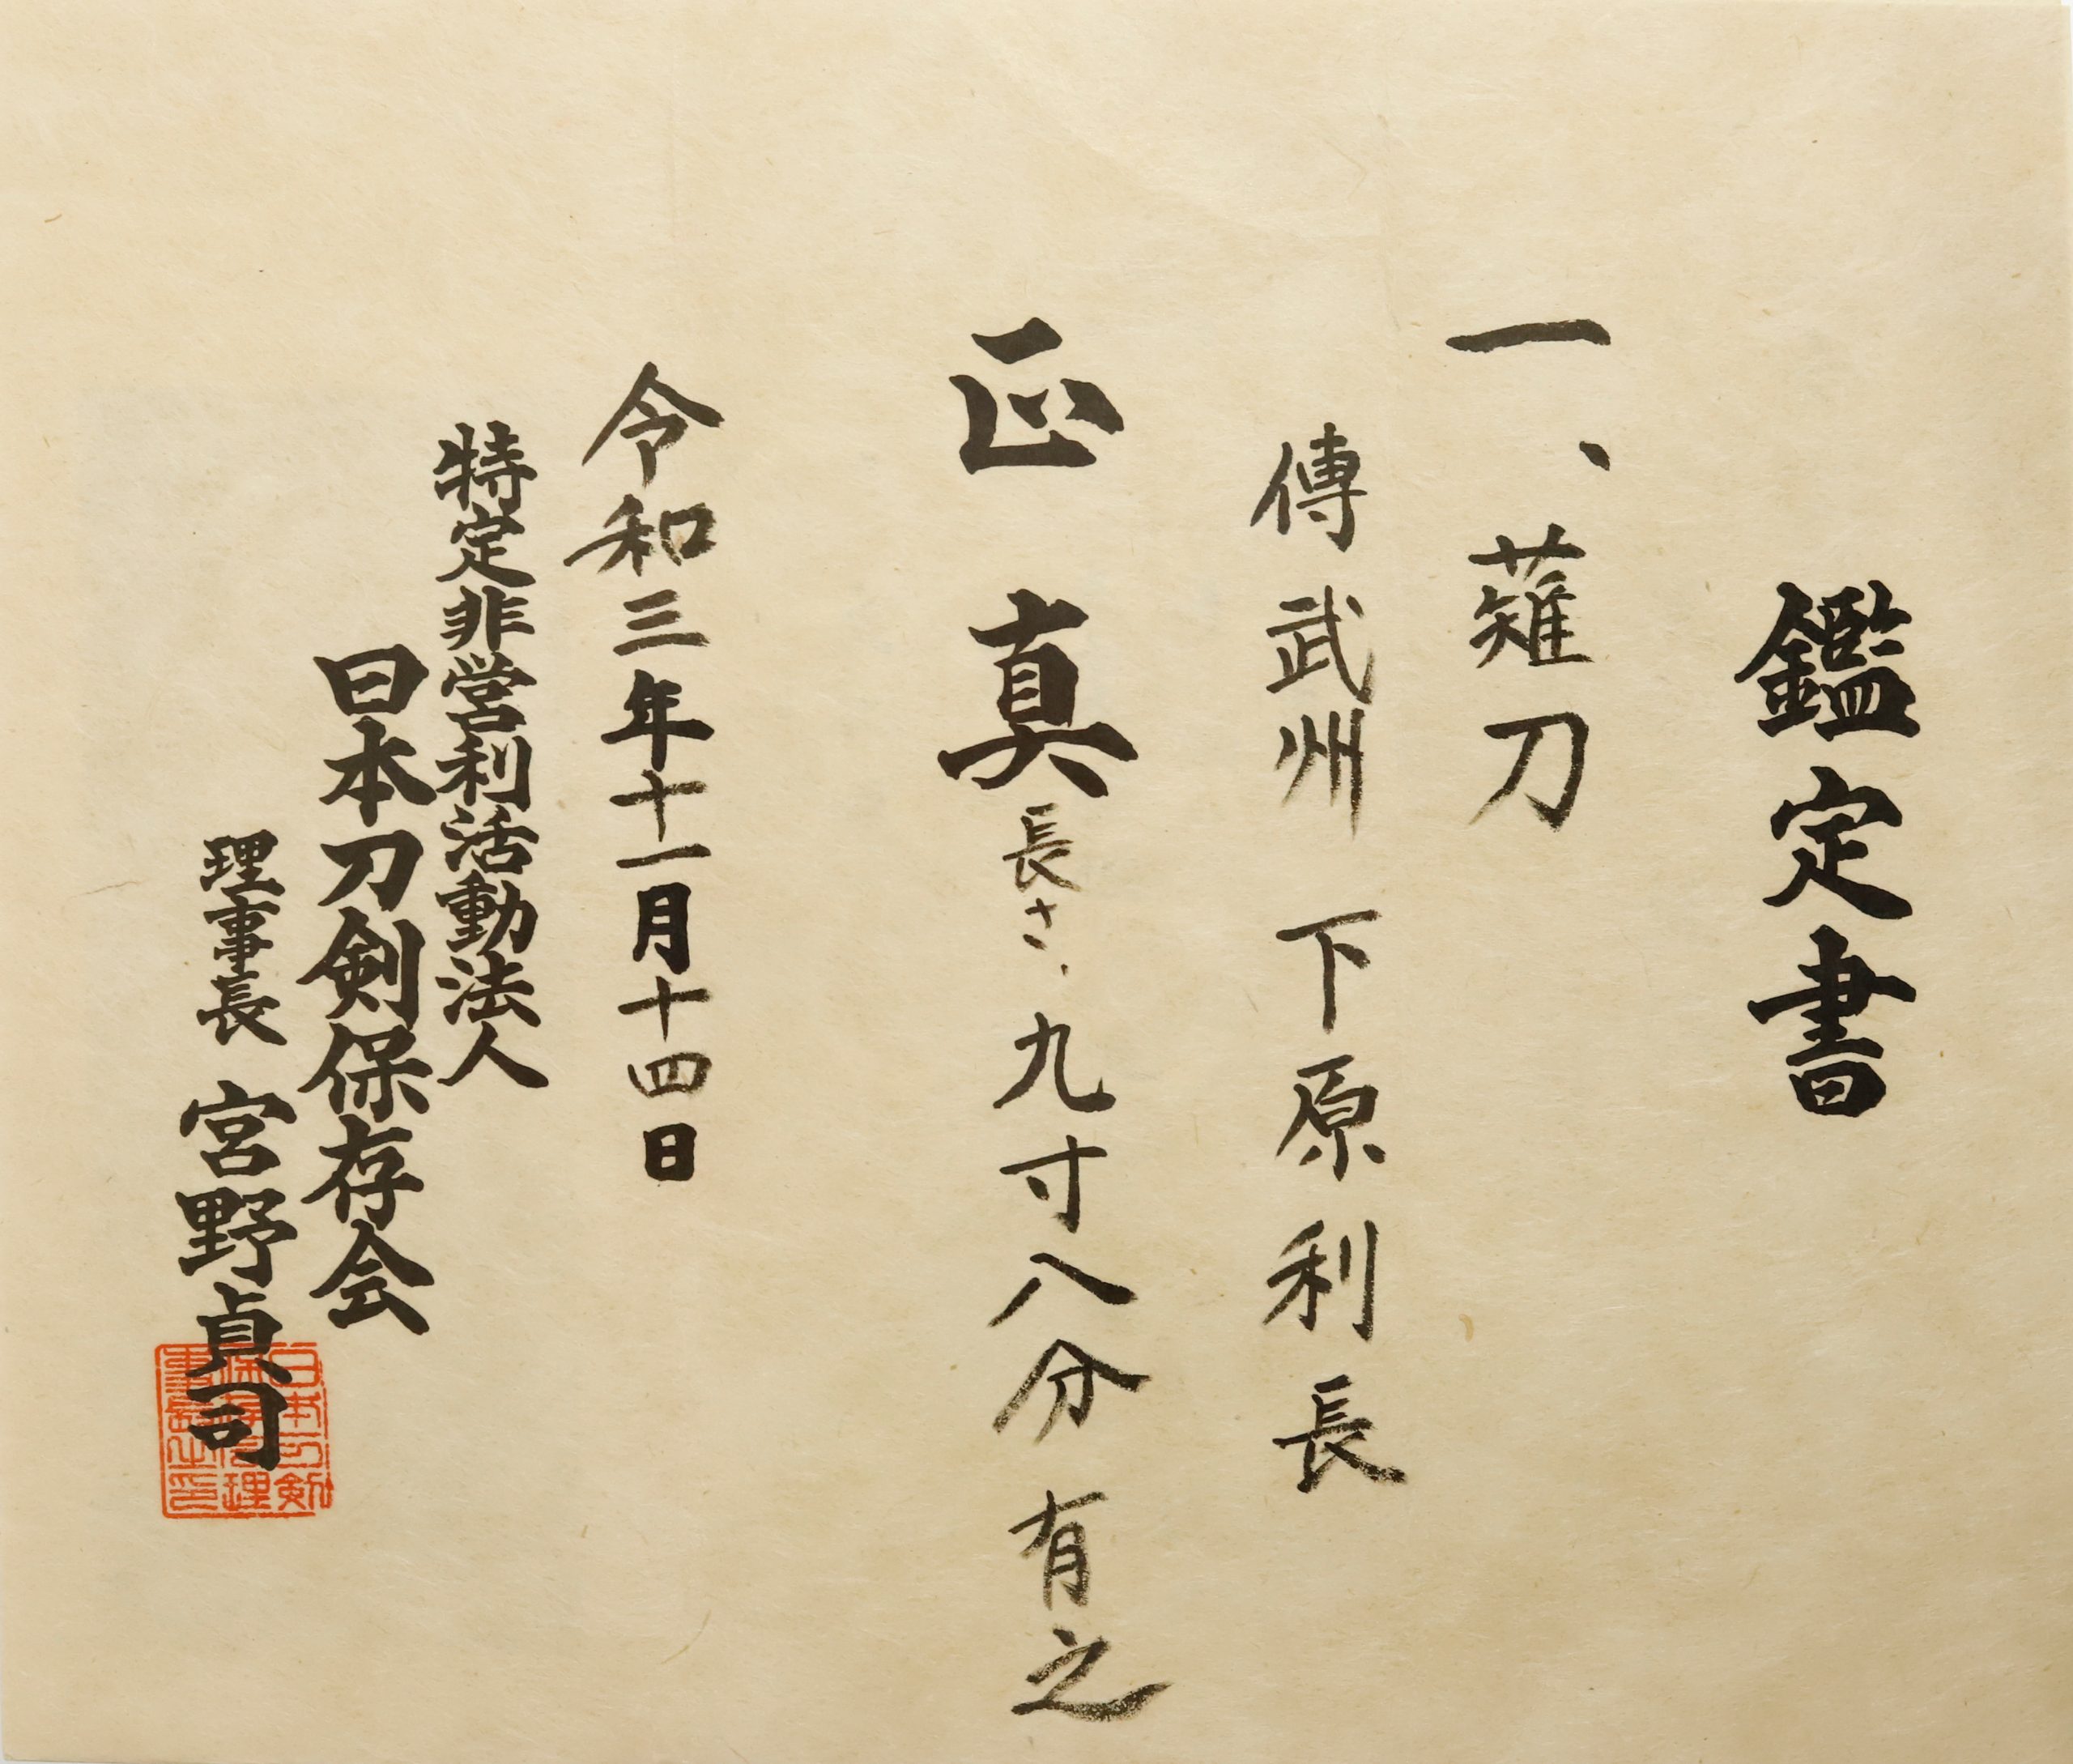 鑑定書
一、薙刀
傳武州 下原利長
正真 長さ 九寸八分 有之
令和三年十一月十四日
特定非営利活動法人
日本刀剣保存会
理事長 宮野貞司
日本刀剣
保存会理
事長之印